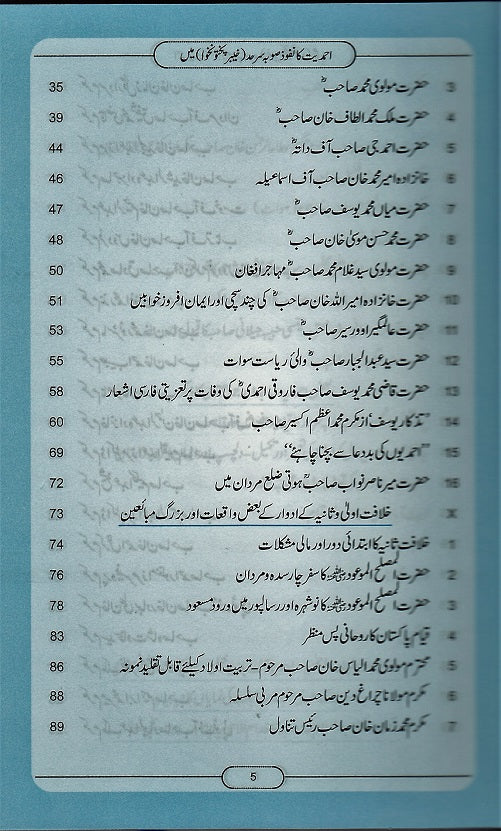 احمدیت کا نفوذ صوبہ سرحد (خیبر پختونخوا) میں
3 حضرت مولوی محمد صاحبؓ 35
4 حضرت ملک محمد الطاف خان صاحبؓ 39
5 حضرت احمد جی صاحب آف داتہؓ 44
6 خانزادہ امیر محمد خان صاحب آف اسماعیلہ 46
7 حضرت میاں محمد یوسف صاحبؓ 47
8 حضرت محمد حسن موسیٰ خان صاحبؓ 48
9 حضرت مولوی سید غلام محمد صاحبؓ مہاجر افغان 50
10 حضرت خانزادہ امیر اللہ خان صاحبؓ کی چند سچی اور ایمان افروز خوابیں 51
11 حضرت عالمگیر اوورسیر صاحبؓ 53
12 حضرت سید عبدالجبار صاحبؓ والئی ریاست سوات 55
13 حضرت قاضی محمد یوسف صاحب فاروقی احمدیؓ کی وفات پر تعزیتی فارسی اشعار 58
14 'تذکار یوسف' از مکرم محمد اعظم اکسیر صاحب 60
15 "احمدیوں کی بددعا سے بچنا چاہئے" 69
16 حضرت میر ناصر نواب صاحبؓ ہوتی ضلع مردان میں 72
X خلافت اولیٰ و ثانیہ کے ادوار کے بعض واقعات اور بزرگ مبائعین 73
1 خلافت ثانیہ کا ابتدائی دور اور مالی مشکلات 74
2 حضرت المصلح الموعودؓ کا سفر چارسدہ و مردان 76
3 حضرت المصلح الموعودؓ کا نوشہرہ اور رسالپور میں ورود مسعود 78
4 قیام پاکستان کا روحانی پس منظر 83
5 محترم مولوی محمد الیاس خان صاحب مرحوم - تربیت اولاد کیلئے قابل تقلید نمونہ 86
6 مکرم مولانا چراغ دین صاحب مرحوم مربی سلسلہ 88
7 مکرم محمد زمان خان صاحب رئیس تناول 89
5